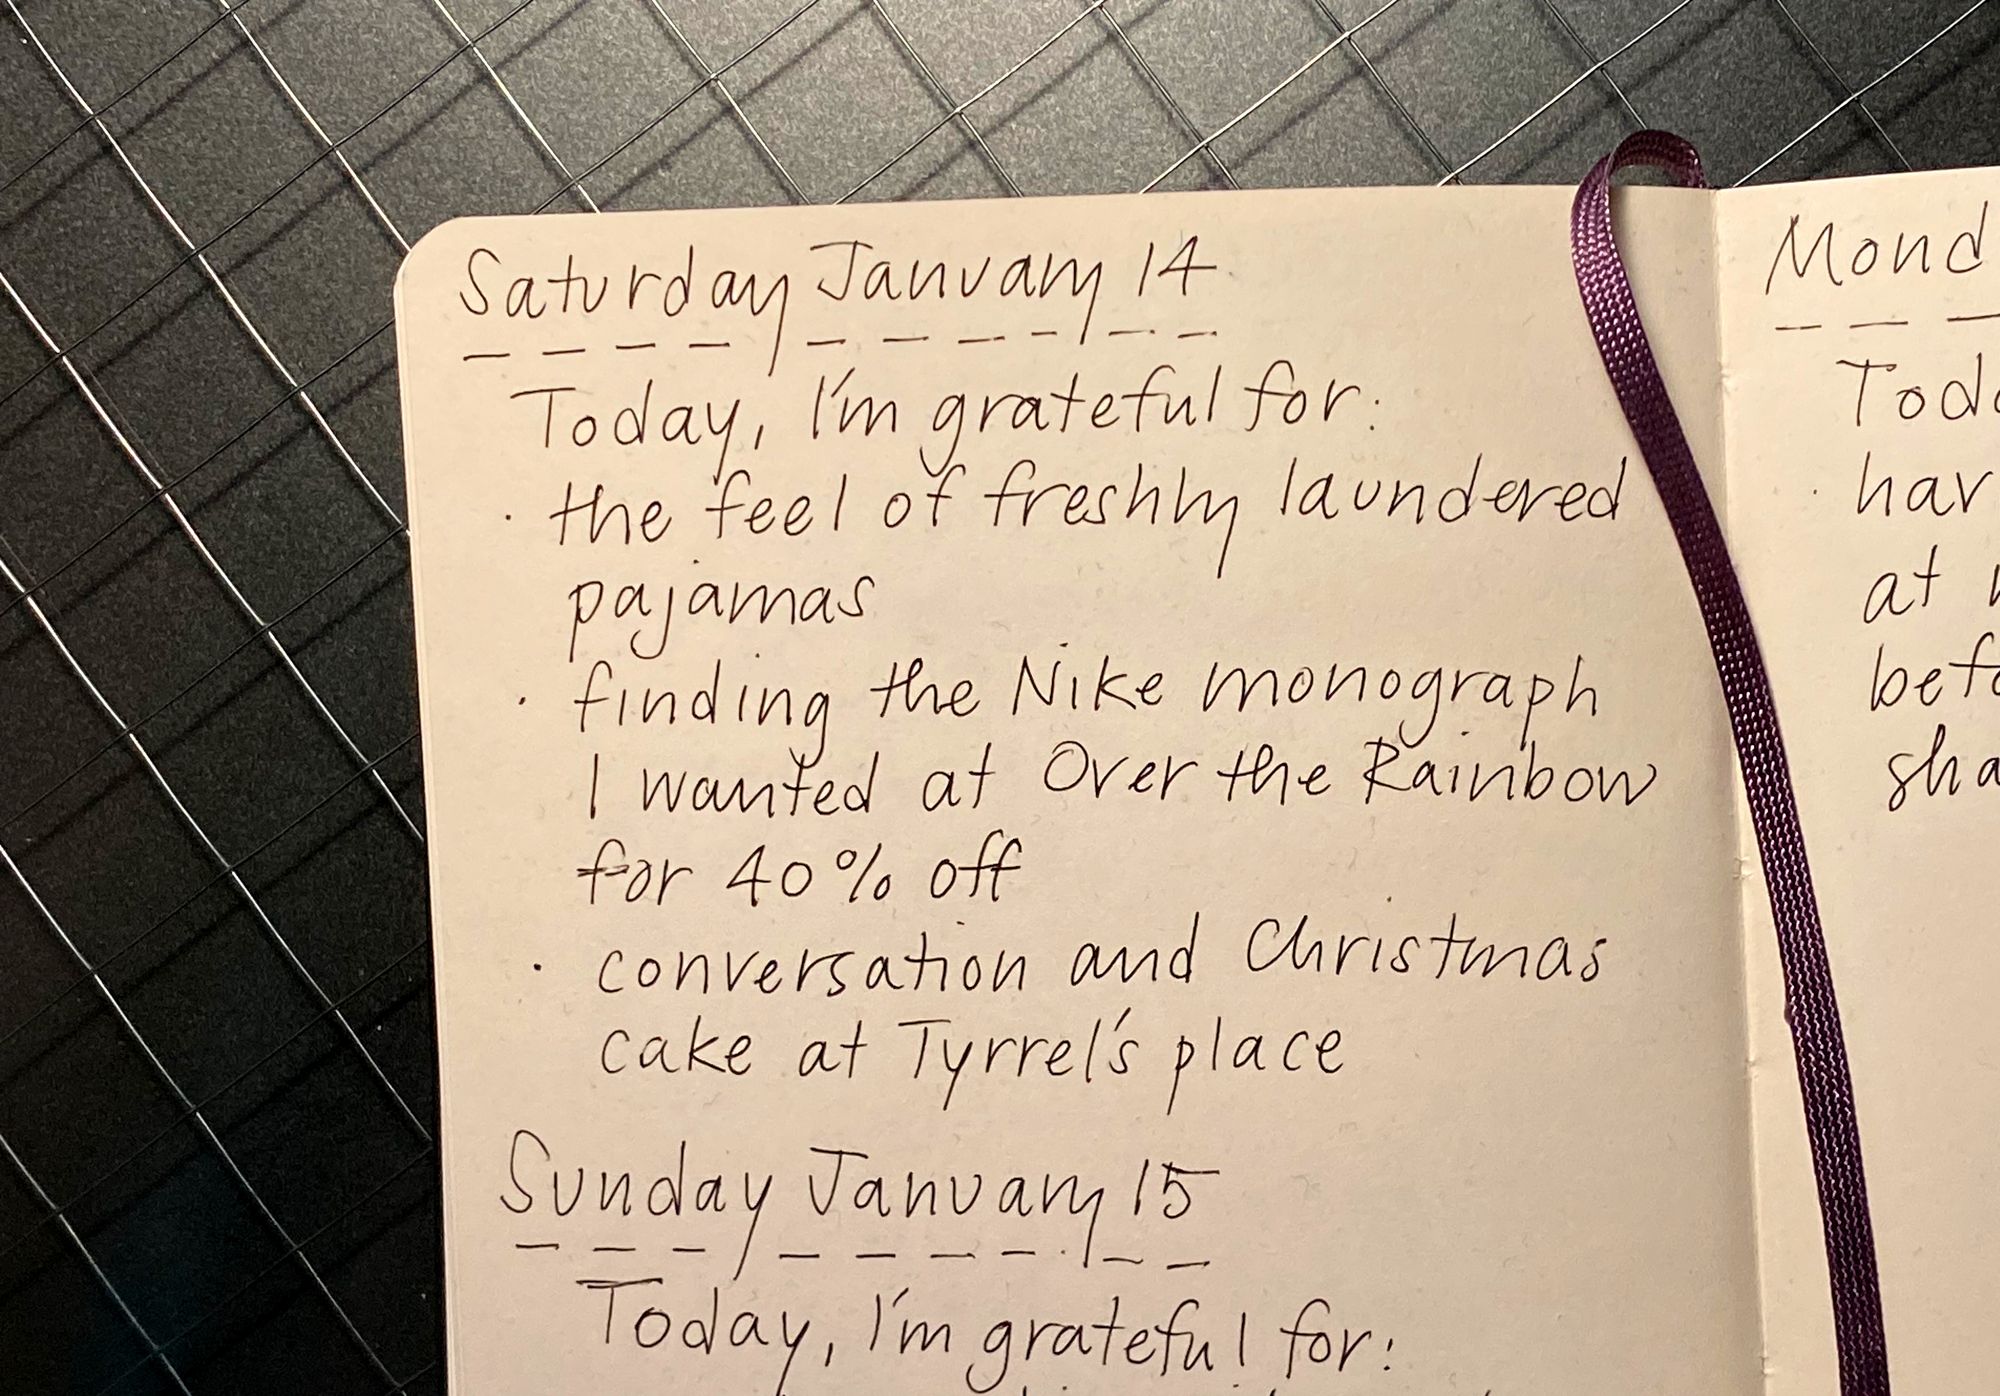 Saturday January 14
Today, I'm grateful for:
· the feel of freshly laundered
pajamas
· finding the Nike monograph
I wanted at Over the Rainbow
for 40% off
· conversation and Christmas
cake at Tyrrel's place
Sunday January 15
Today, I'm grateful for:
Mond
Toda
· har
at
befo
sha